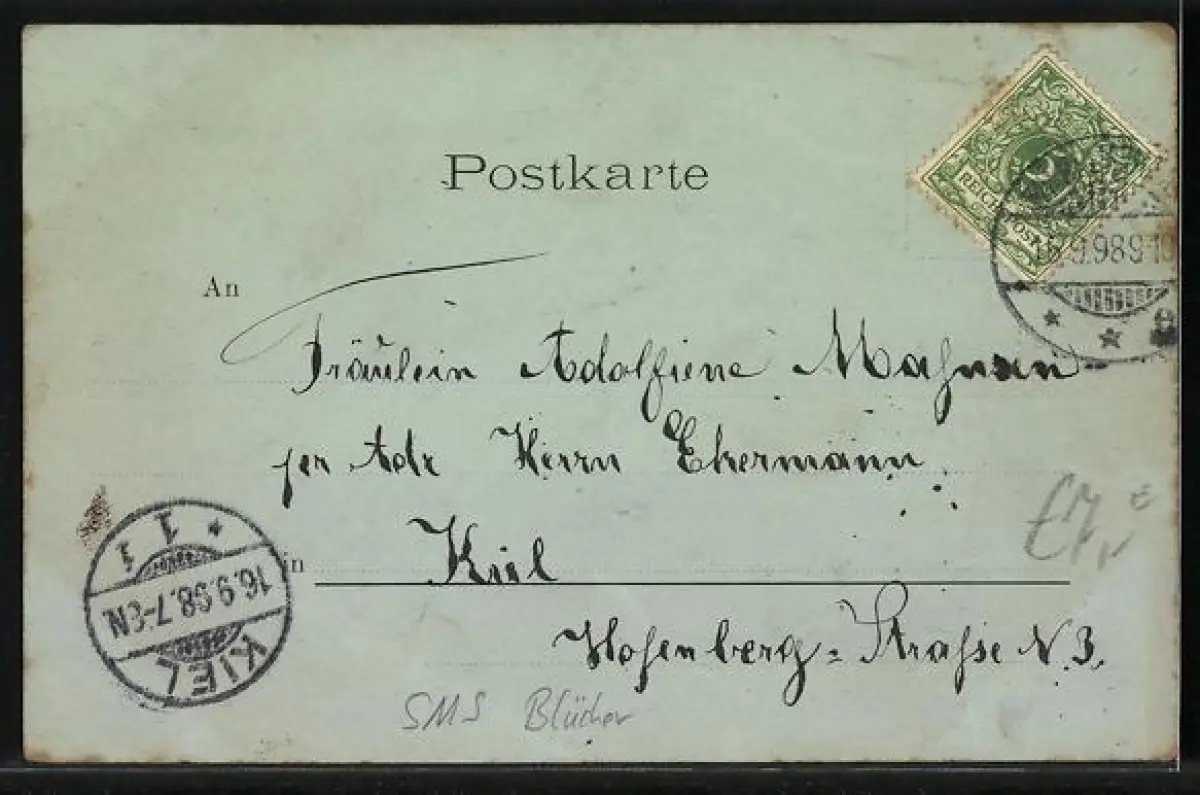 Postkarte
REICHSPOST
16.9.98 9-10
An
Fräulein Adolfiene Mahnan
per Adr Herrn Ekermann
in Kiel
Hohenberg=Straße N. 3.
KIEL
16.9.98.7-8N.
* 1 1
SMS Blücher